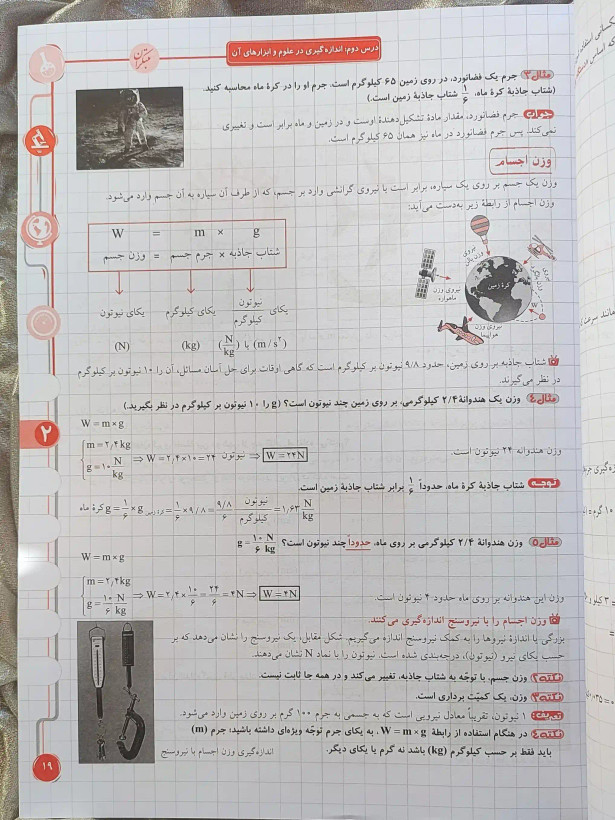 درس دوم: اندازه‌گیری در علوم و ابزارهای آن
مثال ۳ جرم یک فضانورد، در روی زمین ۶۵ کیلوگرم است. جرم او را در کرهٔ ماه محاسبه کنید.
(شتاب جاذبهٔ کرهٔ ماه، ۱/۶ شتاب جاذبهٔ زمین است.)
جواب جرم فضانورد، مقدار مادهٔ تشکیل‌دهندهٔ اوست و در زمین و ماه برابر است و تغییری
نمی‌کند. پس جرم فضانورد در ماه نیز همان ۶۵ کیلوگرم است.
وزن اجسام
وزن یک جسم بر روی یک سیاره، برابر است با نیروی گرانشی وارد بر جسم، که از طرف آن سیاره به آن جسم وارد می‌شود.
وزن اجسام از رابطهٔ زیر به‌دست می‌آید:
W = m × g
شتاب جاذبه × جرم جسم = وزن جسم
یکای نیوتون/کیلوگرم یکای کیلوگرم یکای نیوتون
(m/s²) یا (N/kg) (kg) (N)
نیروی وزن بالن
نیروی وزن ماهواره
کرهٔ زمین
W
نیروی وزن هواپیما
شتاب جاذبه بر روی زمین، حدود ۹/۸ نیوتون بر کیلوگرم است که گاهی اوقات برای حل آسان مسائل، آن را ۱۰ نیوتون بر کیلوگرم
در نظر می‌گیرند.
مثال ۴ وزن یک هندوانهٔ ۲/۴ کیلوگرمی، بر روی زمین چند نیوتون است؟ (g را ۱۰ نیوتون بر کیلوگرم در نظر بگیرید.)
W = m × g
{m = ۲٫۴ kg
g = ۱۰ N/kg ⇒ W = ۲٫۴ × ۱۰ = ۲۴ نیوتون ⇒ W = ۲۴N
وزن هندوانه ۲۴ نیوتون است.
توجه شتاب جاذبهٔ کرهٔ ماه، حدوداً ۱/۶ برابر شتاب جاذبهٔ زمین است.
g کرهٔ ماه = ۱/۶ × g کرهٔ زمین = ۱/۶ × ۹/۸ = ۹/۸/۶ نیوتون/کیلوگرم = ۱٫۶۳ N/kg
مثال ۵ وزن هندوانهٔ ۲/۴ کیلوگرمی بر روی ماه، حدوداً چند نیوتون است؟ g = ۱۰/۶ N/kg
W = m × g
{m = ۲٫۴kg
g = ۱۰/۶ N/kg ⇒ W = ۲٫۴ × ۱۰/۶ = ۲۴/۶ = ۴N ⇒ W = ۴N
وزن این هندوانه بر روی ماه حدود ۴ نیوتون است.
وزن اجسام را با نیروسنج اندازه‌گیری می‌کنند.
بزرگی یا اندازهٔ نیروها را به کمک نیروسنج اندازه می‌گیریم. شکل مقابل، یک نیروسنج را نشان می‌دهد که بر
حسب یکای نیرو (نیوتون)، درجه‌بندی شده است. نیوتون را با نماد N نشان می‌دهند.
نکته ۲ وزن جسم، با توجّه به شتاب جاذبه، تغییر می‌کند و در همه جا ثابت نیست.
نکته ۳ وزن، یک کمیّت برداری است.
تعریف: ۱ نیوتون، تقریباً معادل نیرویی است که به جسمی به جرم ۱۰۰ گرم بر روی زمین وارد می‌شود.
نکته ۴ در هنگام استفاده از رابطهٔ W = m × g، به یکای جرم توجّه ویژه‌ای داشته باشید؛ جرم (m)
باید فقط بر حسب کیلوگرم (kg) باشد نه گرم یا یکای دیگر.
اندازه‌گیری وزن اجسام با نیروسنج
۲
۱۹